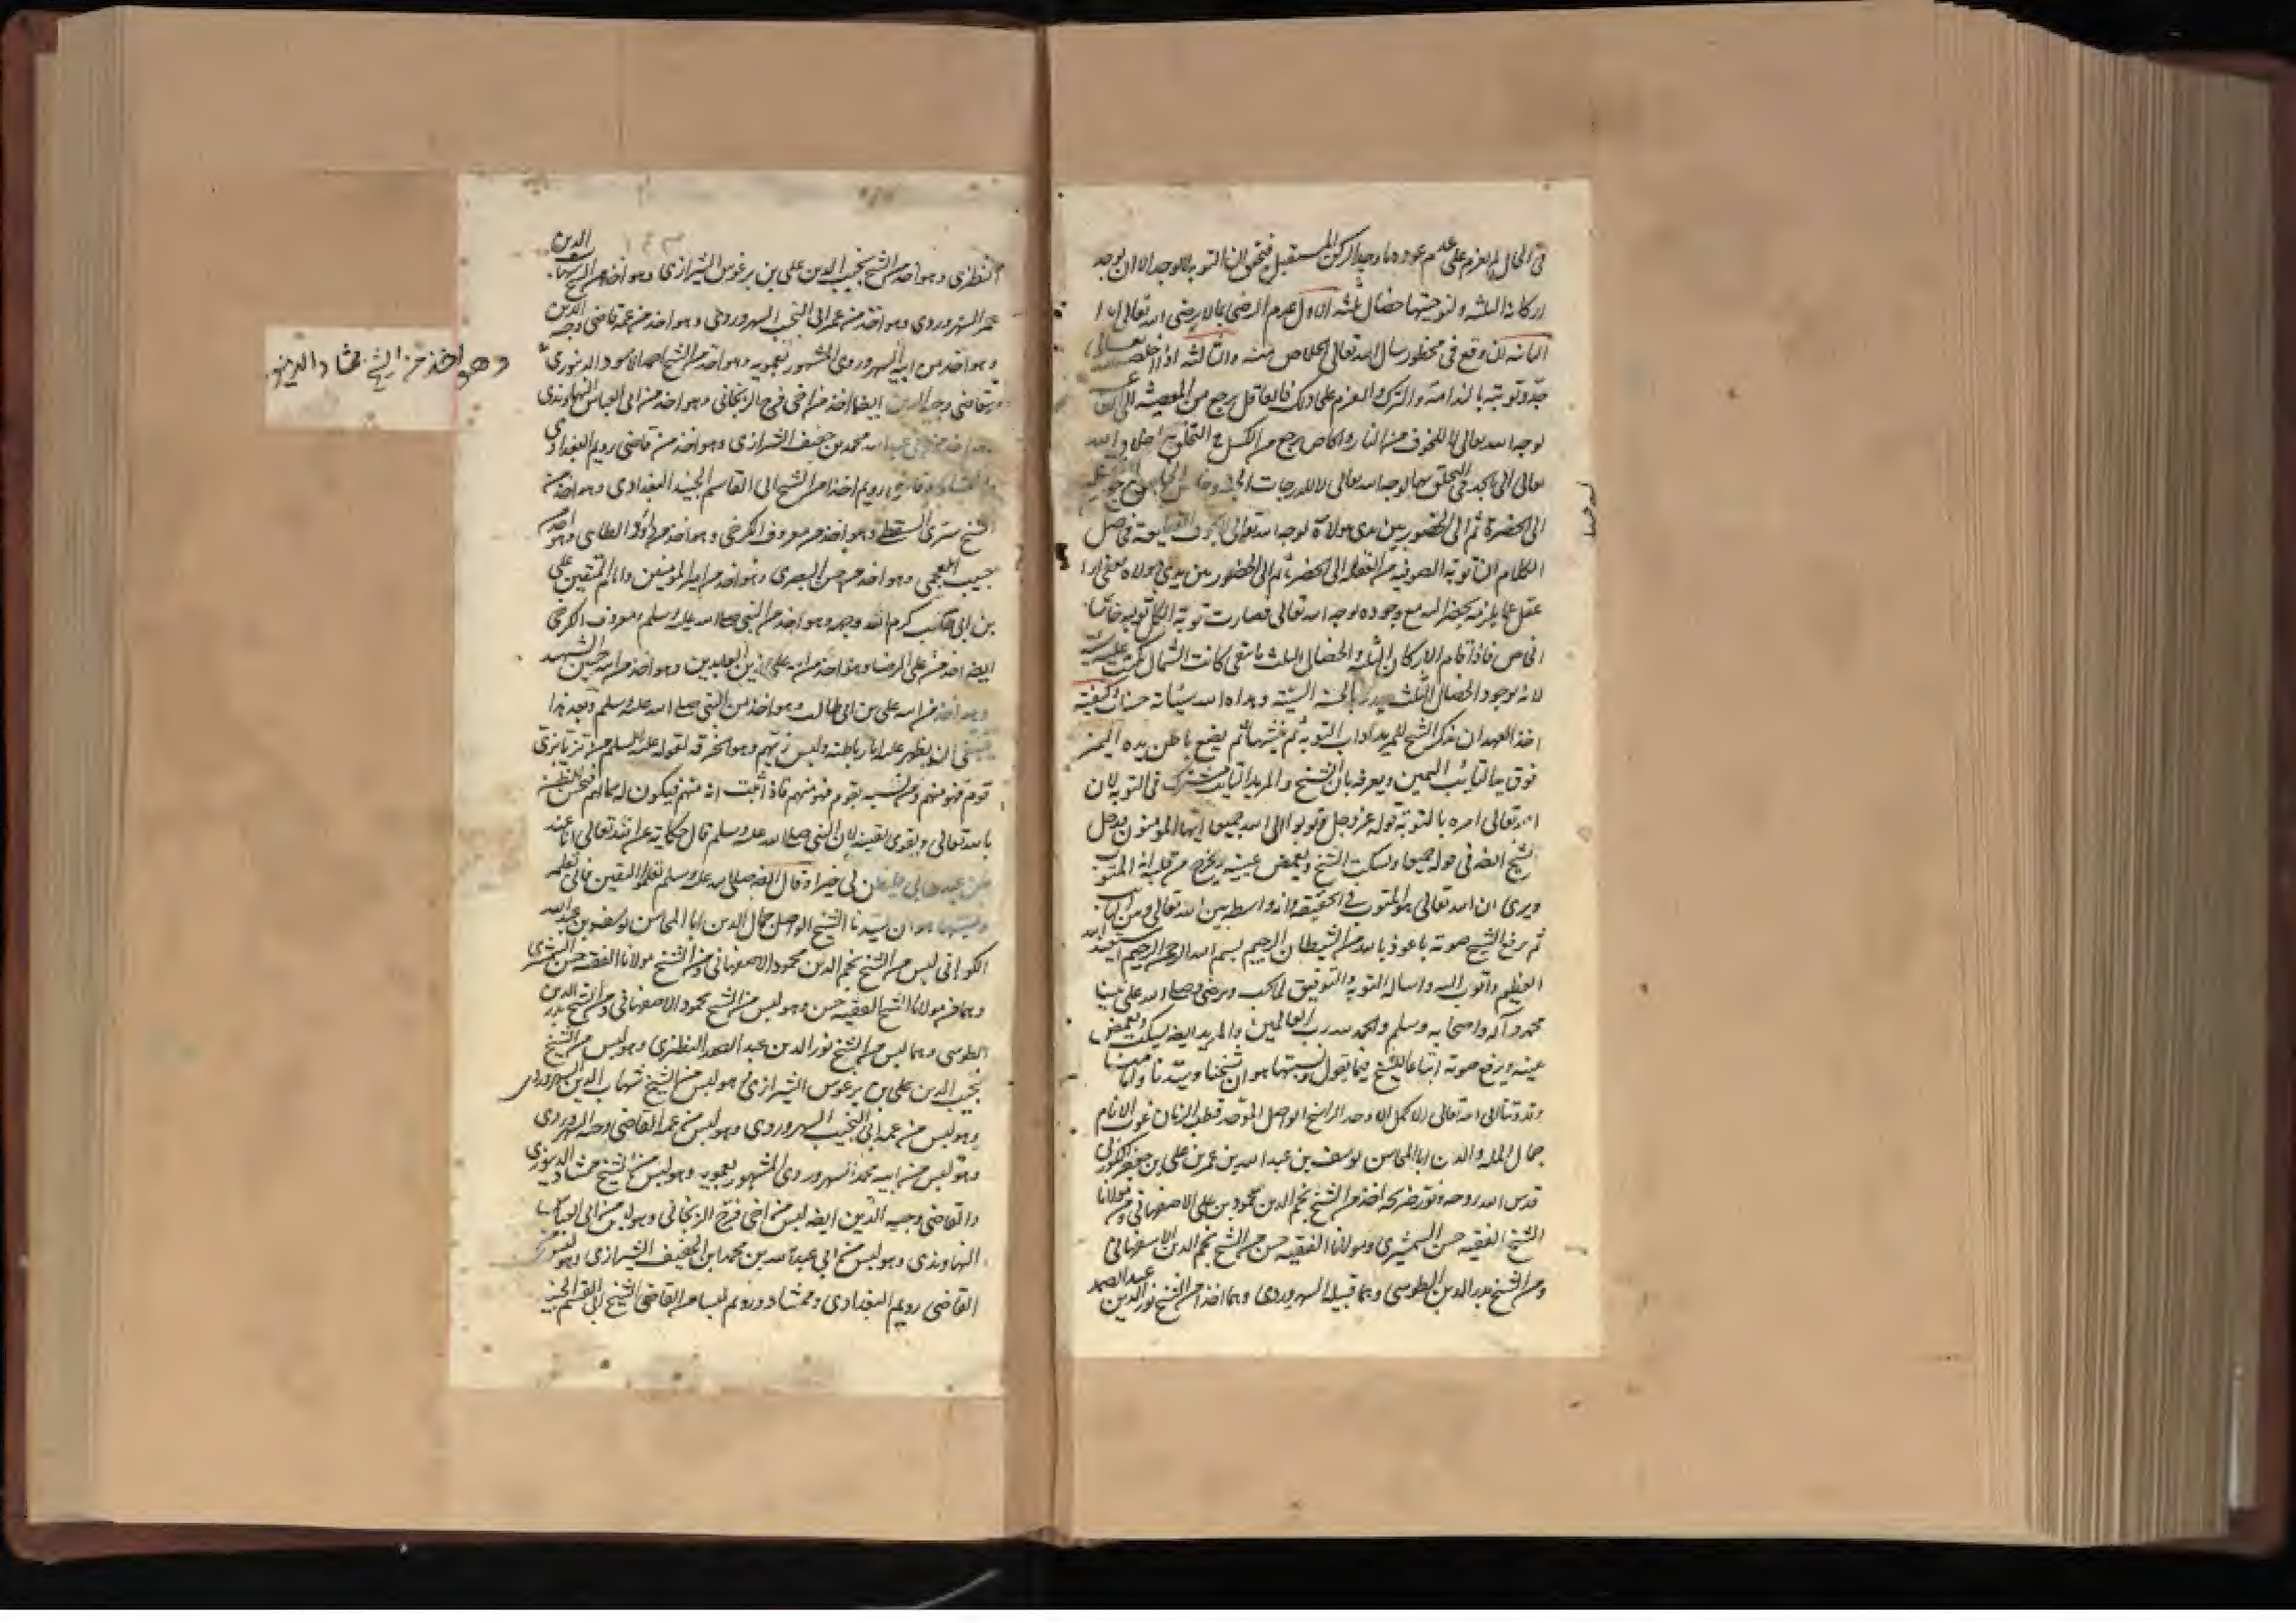 في الحال والعزم على عدم عوده ما وجد الركن المستقبل فتحقق ان التوبة لا توجد الا ان يوجد
اركانه الثلثة ولتوحيتها خصال ثلثة الاول عدم الرضى بما لا يرضى الله تعالى
الثانية ان وقع في محظور سال الله تعالى الخلاص منه والثالثة اذا خلصه الله تعالى
جدد توبته بالندامة والترك والعزم على ذلك فالعاقل يرجع من المعصية الى
لوجه الله تعالى لا للخوف من النار والخاص يرجع من الكسل
تعالى الى لوجه الله تعالى لا للدرجات
الى الحضرة ثم الى الحضور بين يدي مولاه لوجه الله تعالى فحاصل
الكلام ان توبة الصوفية من الغفلة الى الحضرة ثم الى الحضور بين يدي مولاه
عقل عما يلزمه بحضرة الله مع وجوده لوجه الله تعالى فصارت توبة الكل توبة
الخاص فاذا قام الاركان الثلثة والخصال الثلث كانت الشمال
لانه بوجود الخصال الثلث بالحسنة السيئة وبداه الله سيئاته حسنات وكيفية
اخذ العهد ان يذكر الشيخ للمريد اداب التوبة ثم يضع باطن يده اليمنى
فوق يد التائب اليمين ويعرفه بان الشيخ والمريد التائب مشترك في التوبة لان
الله تعالى امره بالتوبة قوله عز وجل توبوا الى الله جميعا ايها المؤمنون فدخل
الشيخ ايضه في قوله جميعا ويسكت الشيخ ويغمض عينيه
ويرى ان الله تعالى هو المتوب في الحقيقة وانه واسطة بين الله تعالى وبين
ثم يرفع الشيخ صوته باعوذ بالله من الشيطان الرجيم بسم الله الرحمن الرحيم استغفر الله
العظيم واتوب اليه واساله التوبة والتوفيق لما يحب ويرضى وصلى الله على نبينا
محمد وآله واصحابه وسلم والحمد لله رب العالمين والمريد ايضه يسكت ويغمض
عينه ويرفع صوته اتباعا للشيخ فيما يقول ونسبتها هو ان شيخنا وسيدنا وامامنا
وقدوتنا الى الله تعالى الاكمل الاوحد الراسخ الواصل الموحد قطب الزمان غوث الانام
جمال الملة والدين ابا المحاسن يوسف بن عبد الله بن عمر بن على بن خضر الكوراني
قدس الله روحه ونور ضريحه اخذ من الشيخ نجم الدين محمود بن على الاصفهاني ومن مولانا
الشيخ الفقيه حسن الشمشيري ومولانا الفقيه حسن من الشيخ نجم الدين الاصفهاني
ومن الشيخ بدر الدين الطوسي وهما قبيله السهروردي وهما اخذ من الشيخ نور الدين عبد الصمد
النطنزي وهو اخذ من الشيخ نجيب الدين على بن برغوس الشيرازي وهو اخذ من الشيخ شهاب الدين
عمر السهروردي وهو اخذ من عمه ابي النجيب السهروردي وهو اخذ من عمه قاضي وجيه الدين
وهو اخذ من ابيه السهروردي المشهور بعمويه وهو اخذ من الشيخ احمد الاسود الدينوري
وهو اخذ من الشيخ ممشاد الدينوري
وقاضي وجيه الدين ايضا اخذ من اخي فرج الزنجاني وهو اخذ من ابي العباس النهاوندي
وهو اخذ من ابي عبد الله محمد بن خفيف الشيرازي وهو اخذ من قاضي رويم البغدادي
رويم اخذ من الشيخ ابي القاسم الجنيد البغدادي وهو اخذ من
الشيخ سري السقطي وهو اخذ من معروف الكرخي وهو اخذ من داود الطائي وهو اخذ من
حبيب العجمي وهو اخذ من حسن البصري وهو اخذ من امير المؤمنين وامام المتقين علي
بن ابي طالب كرم الله وجهه وهو اخذ من النبي صلى الله عليه وسلم ومعروف الكرخي
ايضه اخذ من على الرضا وهو اخذ من ابيه على زين العابدين وهو اخذ من ابيه حسين الشهيد
وهو اخذ من ابيه على بن ابي طالب وهو اخذ من النبي صلى الله عليه وسلم وبعد هذا
ينبغي ان يظهر عليه اثار باطنه ولبس زيهم وهو الخرقة لقوله عليه السلام من تزيا بزي
قوم فهو منهم ومن تشبه بقوم فهو منهم فاذا ثبت انه منهم فيكون له مالهم فيحسن الظن
بالله تعالى ويقوى يقينه لان النبي صلى الله عليه وسلم قال حكاية عن الله تعالى انا عند
ظن عبدي بي فليظن بي خيرا وقال ايضه صلى الله عليه وسلم تعلموا اليقين فاني اتعلمه
ونسبتها هو ان سيدنا الشيخ الواصل جمال الدين ابا المحاسن يوسف بن عبد الله
الكوراني لبس من الشيخ نجم الدين محمود الاصفهاني ومن الشيخ مولانا الفقيه حسن الشمشيري
وهما من مولانا الشيخ الفقيه حسن وهو لبس من الشيخ محمود الاصفهاني ومن الشيخ بدر الدين
الطوسي وهما لبس من الشيخ نور الدين عبد الصمد النطنزي وهو لبس من الشيخ
نجيب الدين على بن برغوس الشيرازي وهو لبس من الشيخ شهاب الدين السهروردي
وهو لبس من عمه ابي النجيب السهروردي وهو لبس من عمه القاضي وجيه السهروردي
وهو لبس من ابيه محمد السهروردي المشهور بعمويه وهو لبس من الشيخ ممشاد الدينوري
والقاضي وجيه الدين ايضه لبس من اخي فرج الزنجاني وهو لبس من ابي العباس
النهاوندي وهو لبس من ابي عبد الله بن محمد ابن الخفيف الشيرازي وهو لبس من
القاضي رويم البغدادي وممشاد ورويم لبسا من القاضي الشيخ ابي القسم الجنيد